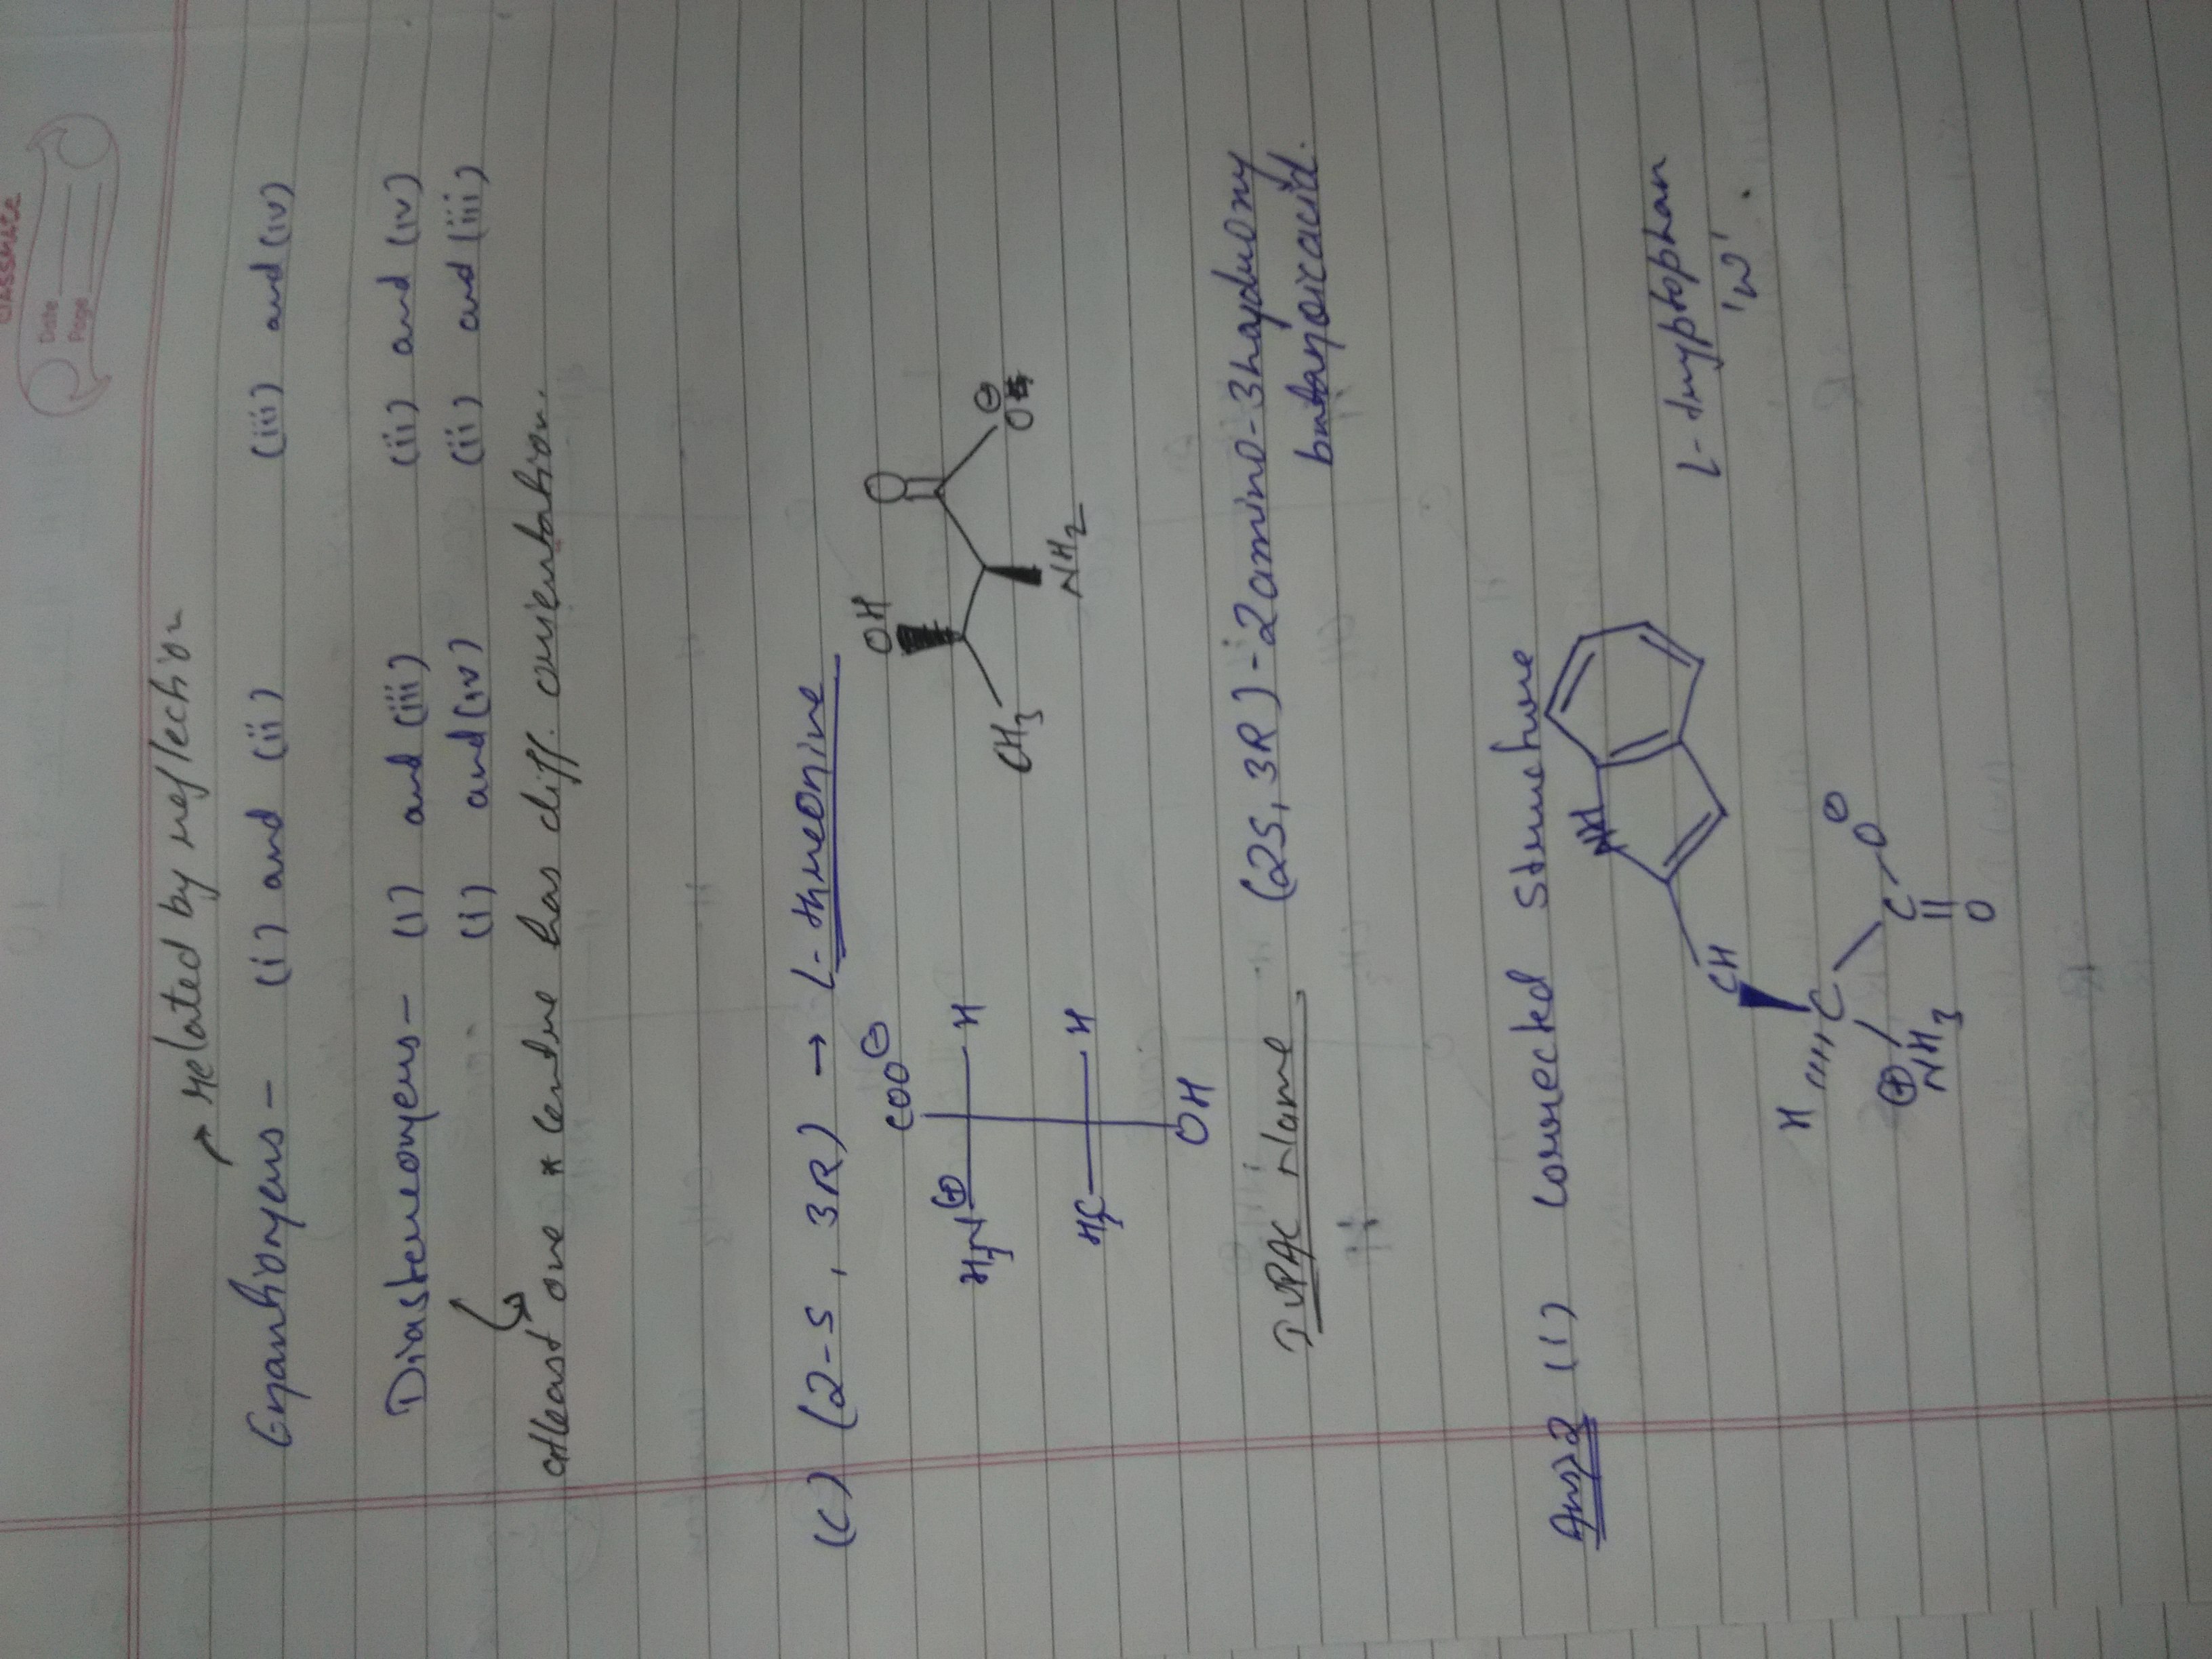 classmate
Date
Page
→ related by reflection
Enantiomers - (i) and (ii) (iii) and (iv)
Diastereomers - (i) and (iii) (ii) and (iv)
(i) and (iv) (ii) and (iii)
atleast one * centre has diff. orientation.
(c) (2-S, 3R) → L-threonine
COO⊖
H₃N⊕ H
H₃C H
OH
OH O
CH₃ NH₂ O⊖
IUPAC Name (2S, 3R) - 2amino-3hydroxy
butanoicacid.
Ans 2 (i) Corrected Structure
NH
CH
H C C O⊖
⊕NH₃ O
L-tryptophan
'W'.